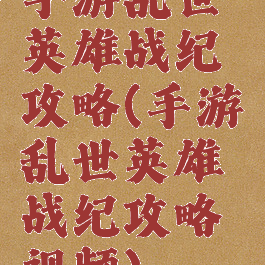 手游乱世
英雄战纪
攻略(手游
乱世英雄
战纪攻略
视频)